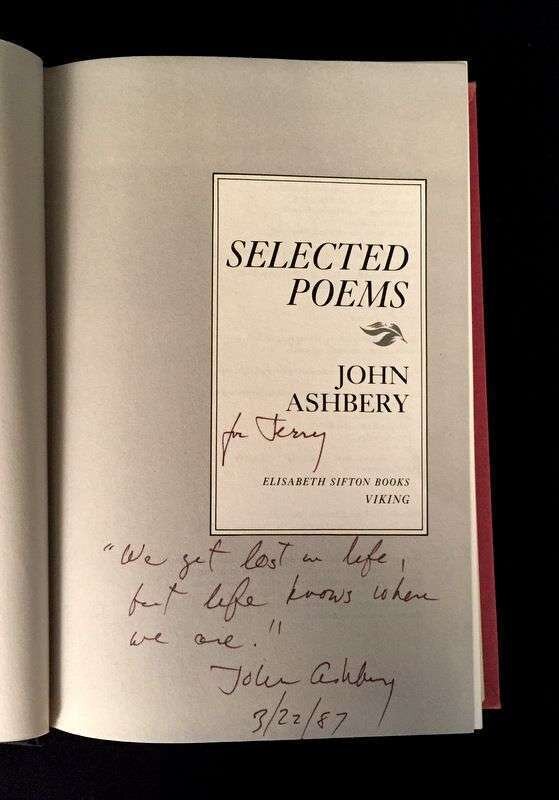 SELECTED
POEMS
JOHN
ASHBERY
for Jerry
ELISABETH SIFTON BOOKS
VIKING
"We get lost in life,
but life knows where
we are."
John Ashbery
3/22/87